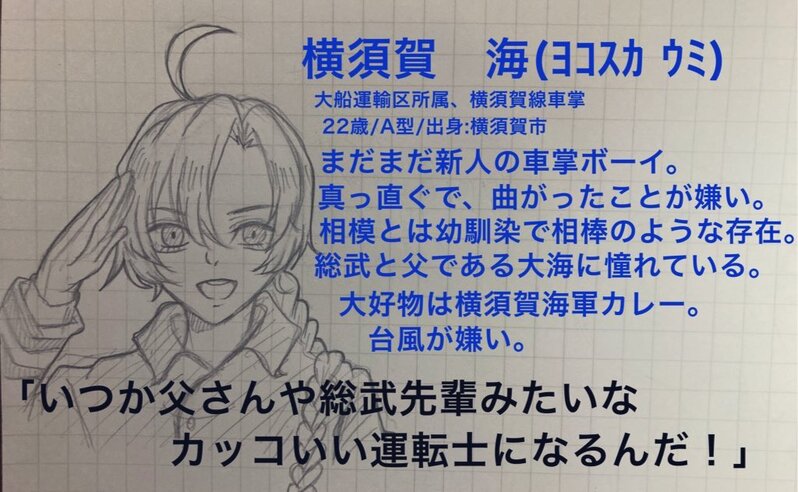 横須賀　海(ﾖｺｽｶ ｳﾐ)
大船運輸区所属、横須賀線車掌
22歳/A型/出身:横須賀市
まだまだ新人の車掌ボーイ。
真っ直ぐで、曲がったことが嫌い。
相模とは幼馴染で相棒のような存在。
総武と父である大海に憧れている。
大好物は横須賀海軍カレー。
台風が嫌い。
「いつか父さんや総武先輩みたいな
カッコいい運転士になるんだ！」